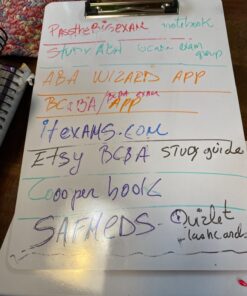 Passthebigexam notebook
STUDY ABA bcaba exam group
ABA WIZARDS APP
BCBA exam APP
itexams.com
Etsy BCBA STUDY guide
Cooper book
SAFMEDS - Quizlet flashcards